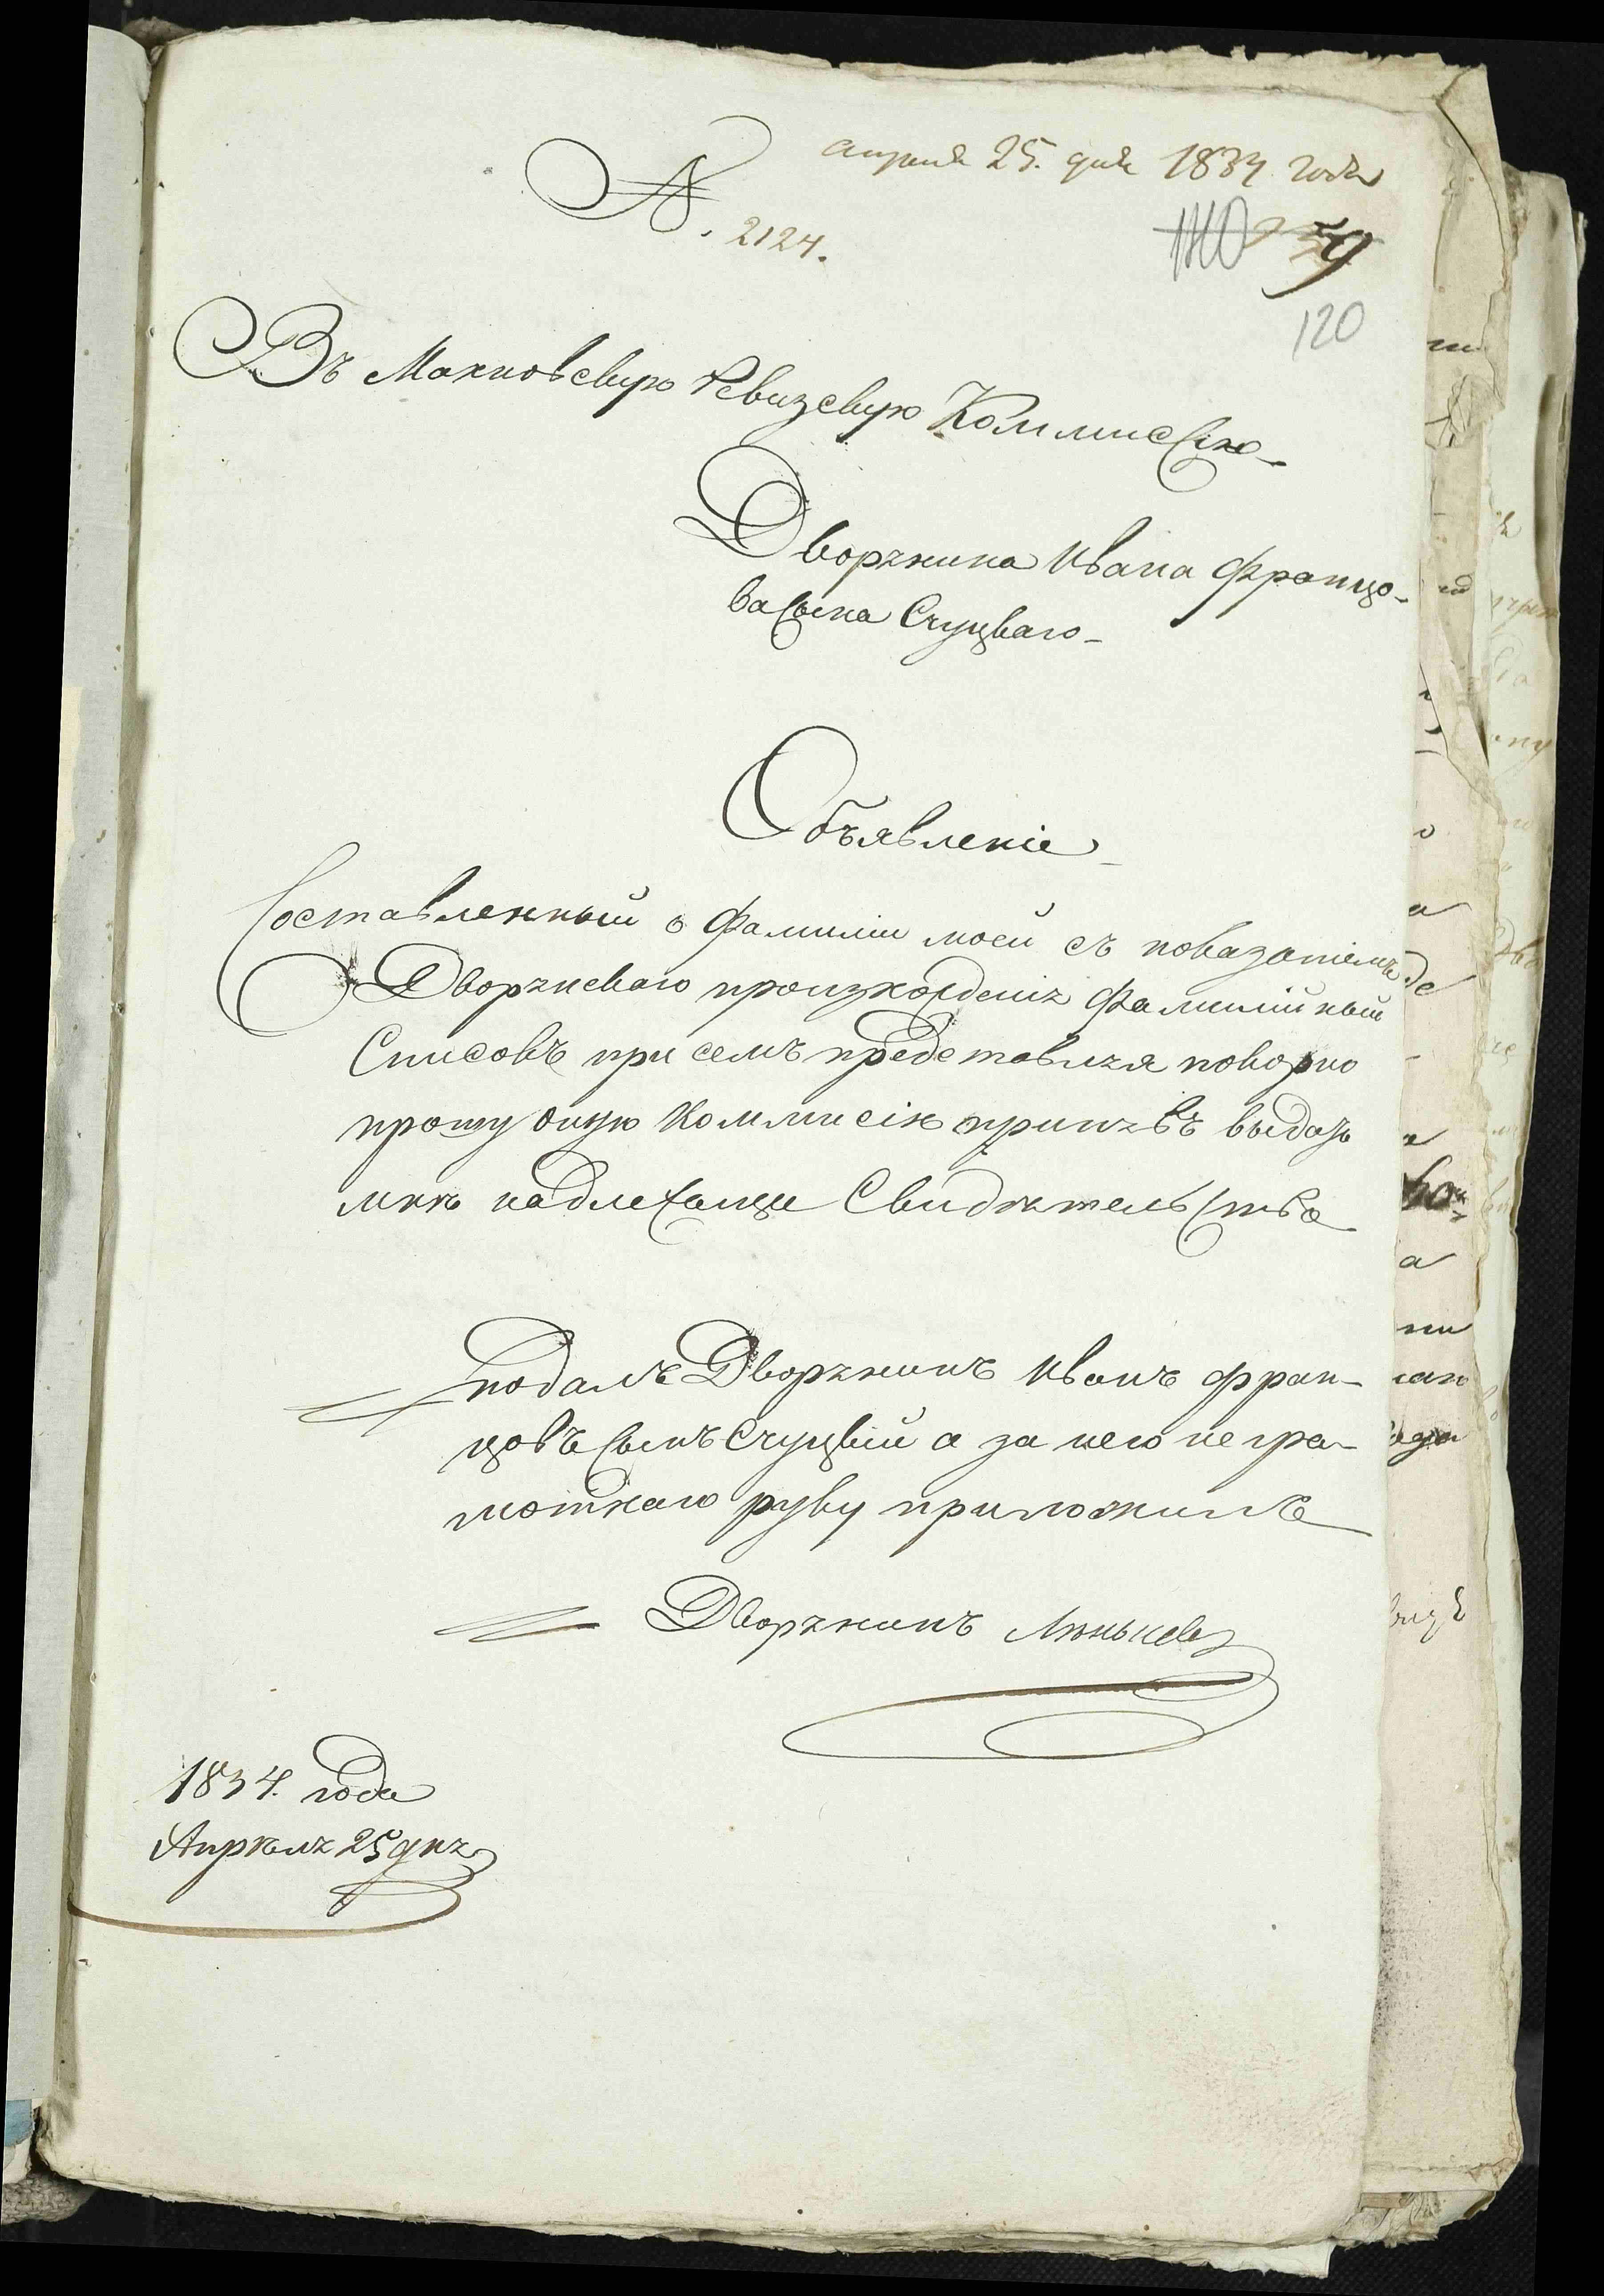 апреля 25. дня 1834 года
№. 2124.
120
Въ Махновскую Ревизскую Коммиссію
Дворянина Ивана Францо-
ва сына Слуцкаго
Объявленіе
Составленный о Фамиліи моей съ показаніемъ
Дворянскаго произхожденія Фамилійный
Списокъ при семъ представляя покорно
прошу оную Коммисію принявъ выдать
мнѣ надлежащее Свидѣтельство
подалъ Дворянинъ Иванъ Фран-
цовъ сынъ Слуцкій а за него негра-
мотнаго руку приложилъ
Дворянинъ
1834. года
Апрѣля 25 дня